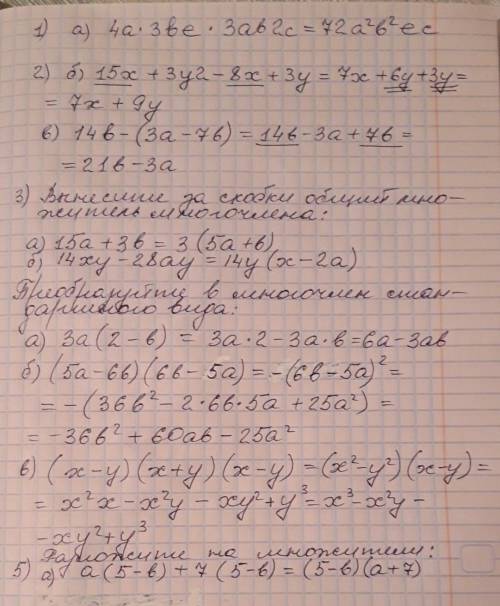 1) а) 4a·3be·3ab2c=72a²b²ec
2) б) 15x+3y2-8x+3y=7x+6y+3y=
=7x+9y
в) 14b-(3a-7b)=14b-3a+7b=
=21b-3a
3) Вынесите за скобки общий мно-
житель многочлена:
а) 15a+3b=3(5a+b)
б) 14xy-28ay=14y(x-2a)
Преобразуйте в многочлен стан-
дартного вида:
а) 3a(2-b)=3a·2-3a·b=6a-3ab
б) (5a-6b)(6b-5a)=-(6b-5a)²=
=-(36b²-2·6b·5a+25a²)=
=-36b²+60ab-25a²
в) (x-y)(x+y)(x-y)=(x²-y²)(x-y)=
=x²x-x²y-xy²+y³=x³-x²y-
-xy²+y³
Разложите на множители:
5) а) a(5-b)+7(5-b)=(5-b)(a+7)